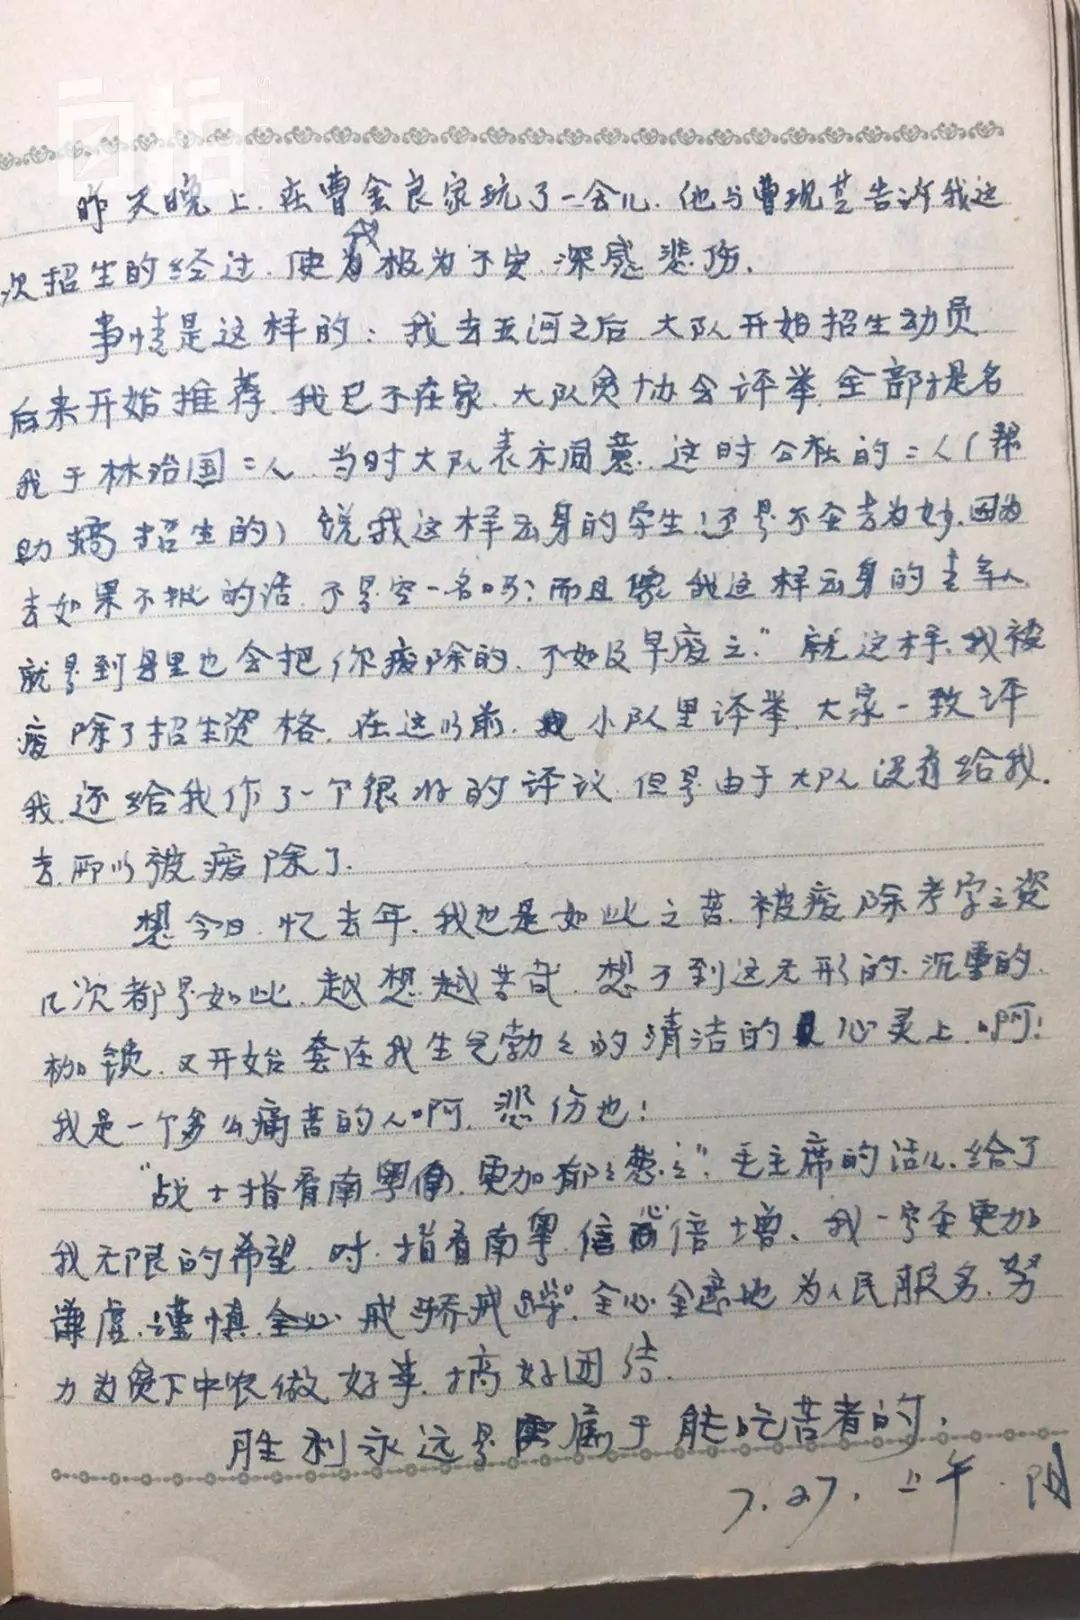 自拍
昨天晚上.在曹金良家玩了一会儿.他与曹现芝告诉我这
次招生的经过.使我极为不安.深感悲伤.
事情是这样的:我去五河之后.大队开始招生动员
后来开始推荐.我已不在家.大队贫协会评举.全部提名
我于林治国二人.当时大队表示同意.这时公社的二人(帮
助搞招生的)说我这样出身的学生!还是不去为妙.因为
去如果不批的话.不是空一名吗?而且像我这样出身的青年人.
就是到县里也会把你废除的.不如及早废之."就这样.我被
废除了招生资格.在这以前.我小队里评举.大家一致评
我.还给我作了一个很好的评议.但是由于大队没有给我.
去.所以被废除了.
想今日.忆去年.我也是如此之苦.被废除考学之资
几次都是如此.越想越苦哉.想不到这无形的.沉重的.
枷锁.又开始套在我生气勃之的清洁的心灵上.啊!
我是一个多么痛苦的人啊.悲伤也!
"战士指看南粤.更加郁之葱之".毛主席的话儿.给了
我无限的希望.时.指看南粤.信心倍增、我一定要更加
谦虚.谨慎.戒骄戒躁.全心全意地为人民服务.努
力为贫下中农做好事.搞好团结.
胜利永远是属于能吃苦者的.
7.27.上午.阴